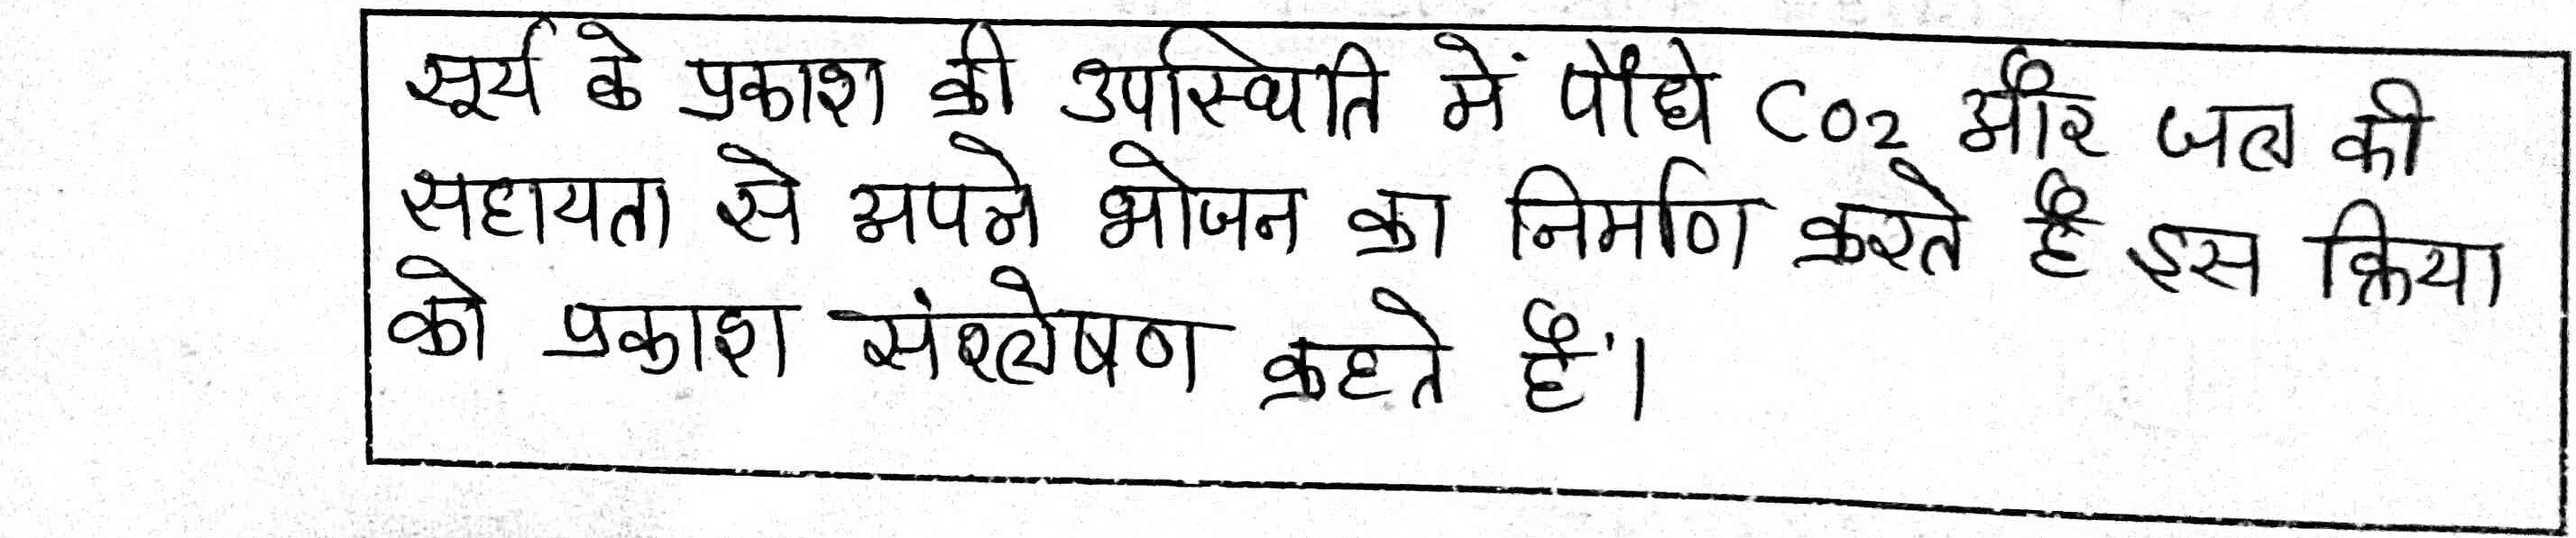 सूर्य के प्रकाश की उपस्थिति में पौधे CO2 और जल की
सहायता से अपने भोजन का निर्माण करते है इस क्रिया
को प्रकाश संश्लेषण कहते हैं।